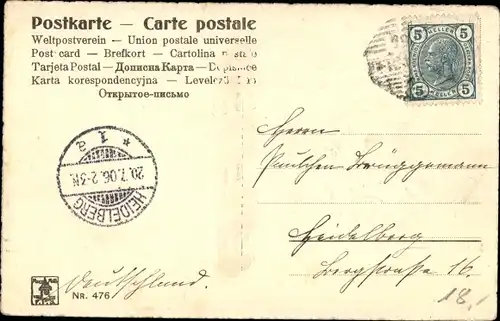 Postkarte — Carte postale
Weltpostverein — Union postale universelle
Post card — Brefkort — Cartolina postale
Tarjeta Postal — Дописна Карта — Dopisnice
Karta korespondencyjna — Levelező-Lap
Открытое-письмо
5 HELLER 5
5 HELLER 5
Fräulein
Paulchen Brüggemann
Heidelberg
Bergstraße 16.
* 1 a
20.7.06. 2-3N.
HEIDELBERG
Deutschland.
NR. 476
18.